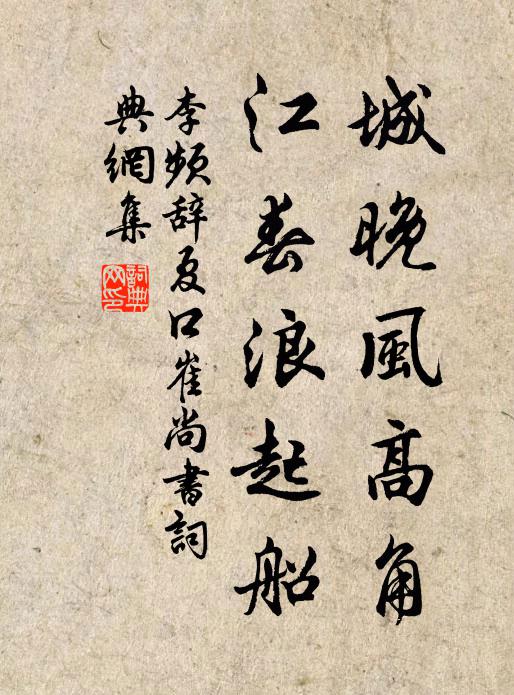 城晚風高角
江春浪起船
李頻辞夏口崔尚書詞
典網集
詞典網印